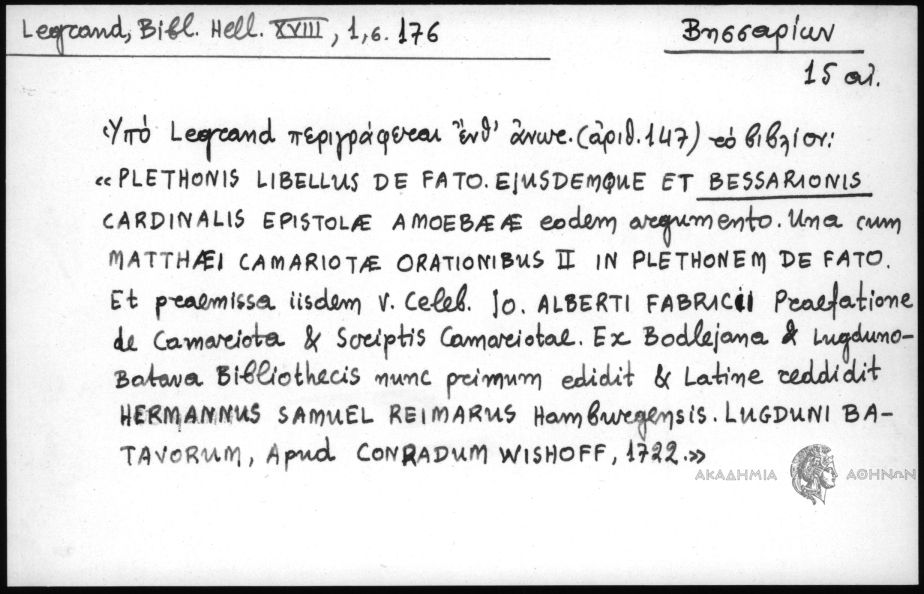 Legrand, Bibl. Hell. XVIII, 1, σ. 176
Βησσαρίων
15 αἰ.
Ὑπό Legrand περιγράφεται "ἐνθ' ἀνωτ. (ἀριθ. 147) τό βιβλίον:
«PLETHONIS LIBELLUS DE FATO. EJUSDEMQUE ET BESSARIONIS
CARDINALIS EPISTOLÆ AMOEBÆÆ eodem argumento. Una cum
MATTHÆI CAMARIOTÆ ORATIONIBUS II IN PLETHONEM DE FATO.
Et praemissa iisdem V. Celeb. Jo. ALBERTI FABRICII Praefatione
de Camariota & Scriptis Camariotae. Ex Bodlejana & Lugduno-
Batava Bibliothecis nunc primum edidit & Latine reddidit
HERMANNUS SAMUEL REIMARUS Hamburgensis. LUGDUNI BA-
TAVORUM, Apud CONRADUM WISHOFF, 1722.»
ΑΚΑΔΗΜΙΑ ΑΘΗΝΩΝ